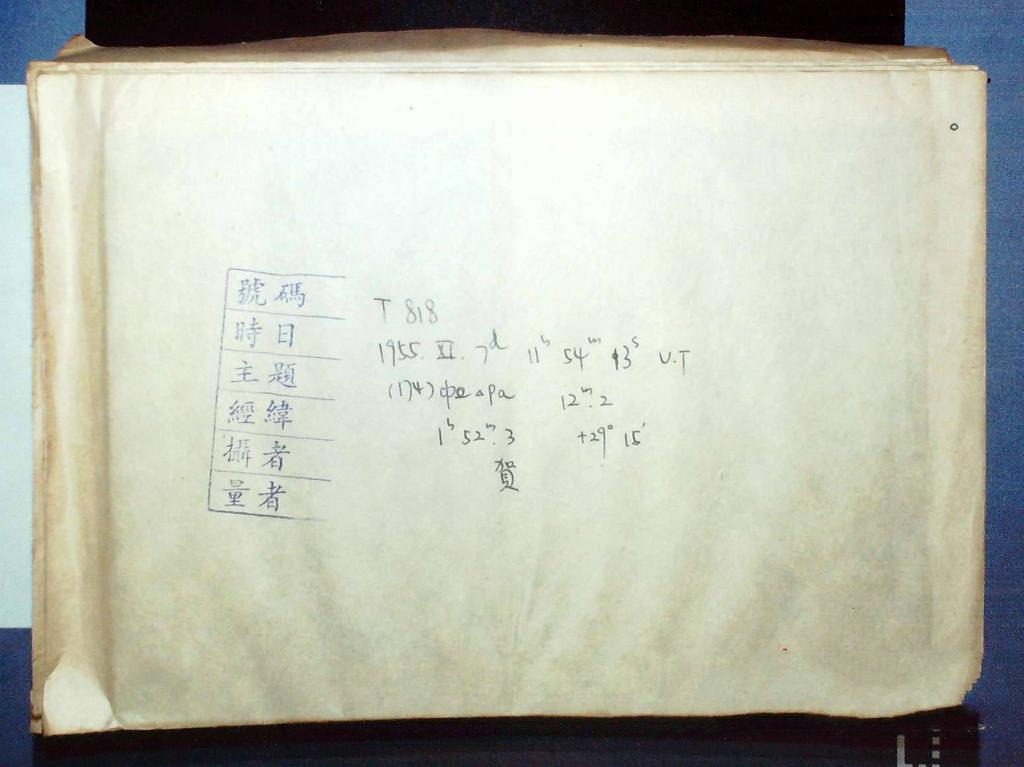 號碼 T 818
時日 1955. XI. 7d 11h 54m 43s U.T
主題 (174) Федра 12m.2
經緯 1h 52m.3 +29° 15'
攝者 賀
量者